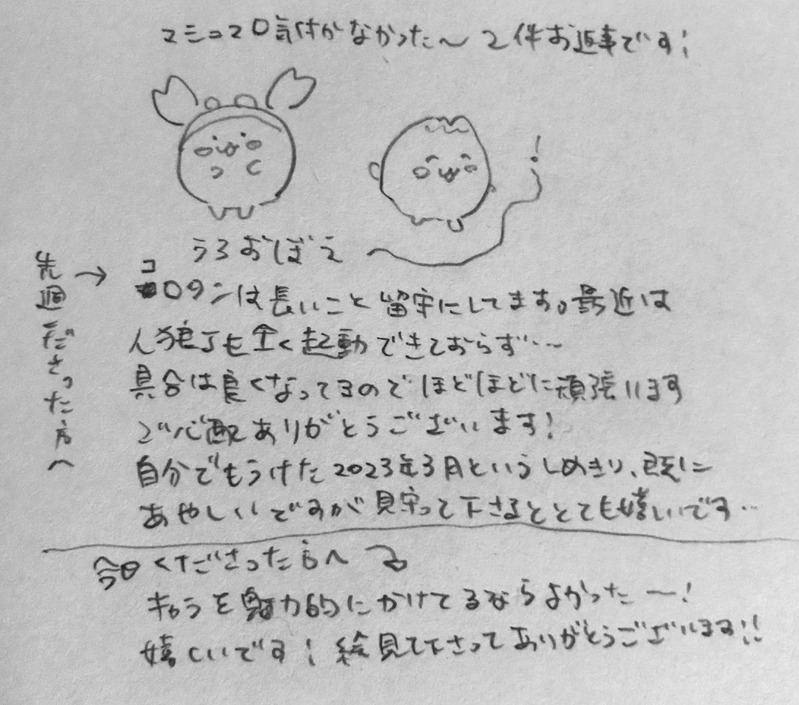 マシュマロ気付かなかった〜 2件お返事です!
!
うろおぼえ
先週くださった方へ
→ コロタンは長いこと留守にしてます。最近は
人狼Jも全く起動できておらず…
具合は良くなってるのでほどほどに頑張ります
ご心配ありがとうございます!
自分でもうけた2023年3月というしめきり、既に
あやしいですが見守って下さるととても嬉しいです…
今日くださった方へ
キャラを魅力的にかけてるならよかった〜!
嬉しいです! 絵見て下さってありがとうございます!!